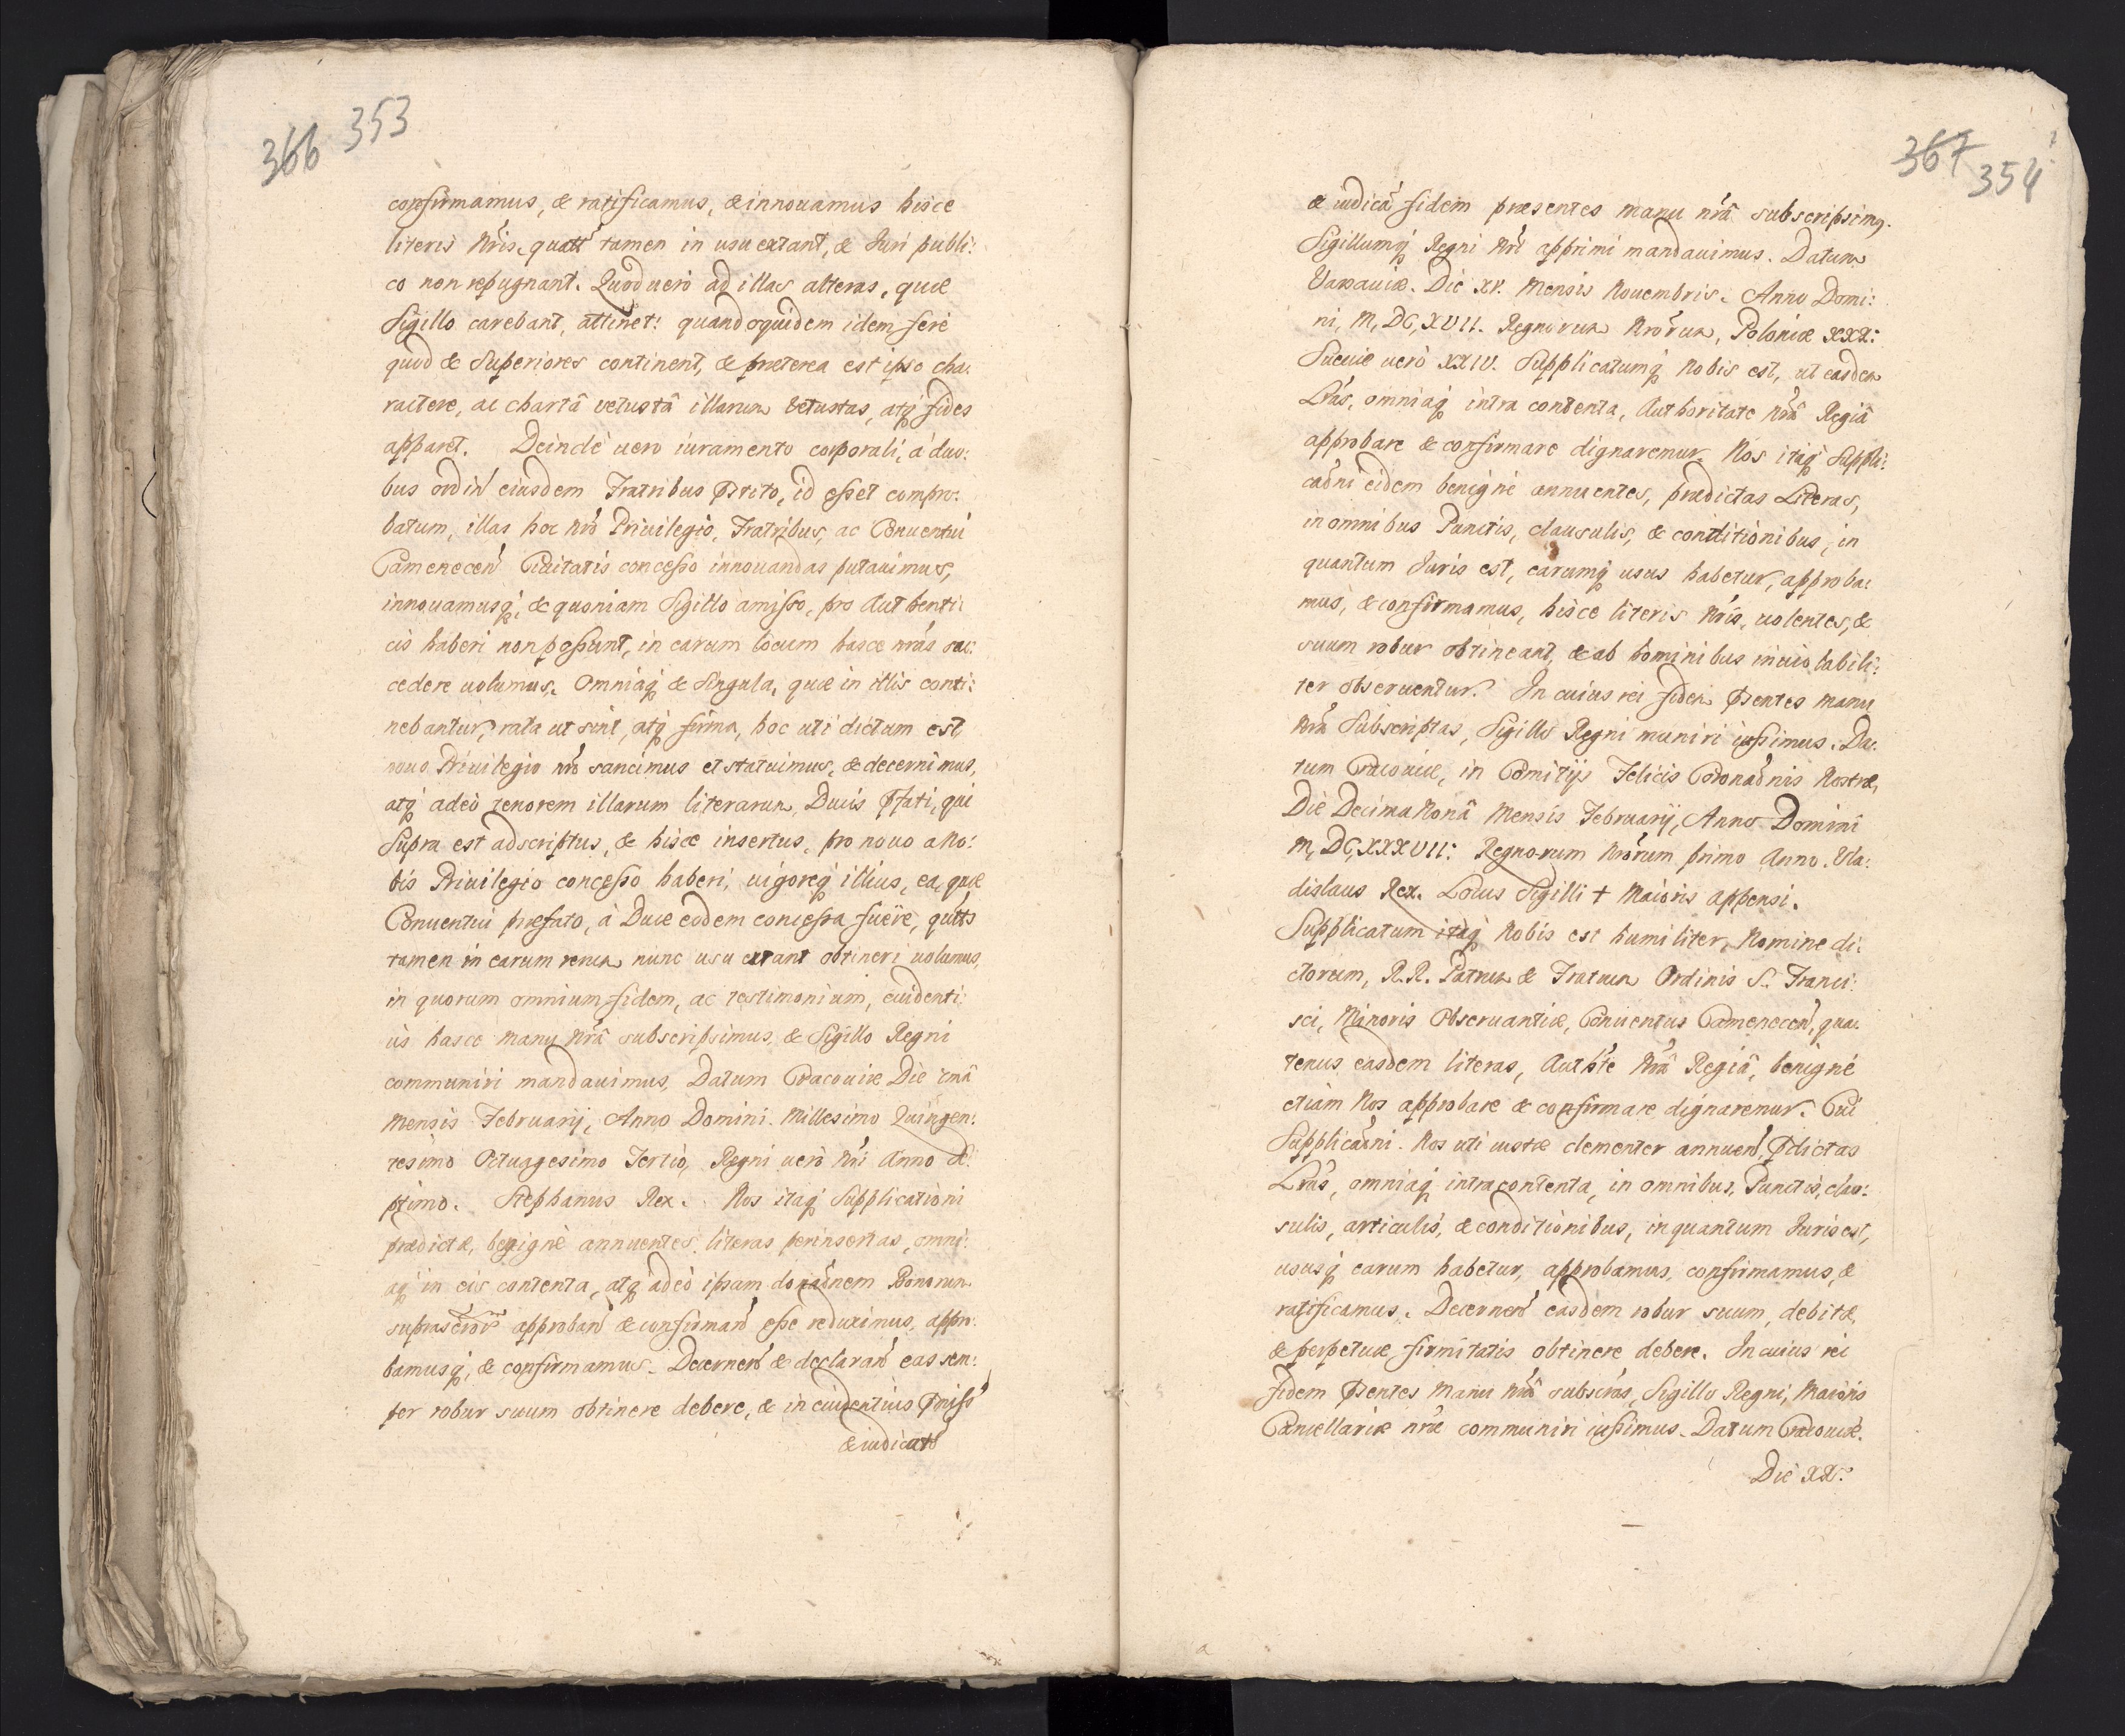 366 353
confirmamus, & ratificamus, & innouamus hisce
literis Nr̃is, quatt̃ tamen in usu extant, & Juri publi:
co non repugnant. Quod uerò ad illas alteras, quæ
Sigillo carebant, attinet: quandoquidem idem ferè
quod & Superiores continent, & præterea est ipso cha:
ractere, ac chartâ vetustâ illarum vetustas, atq́ fides
apparet. Deindè uero iuramento corporali, à duo:
bus ordin̄ eiusdem Fratribus p̄stito, id esset compro:
batum, illas hoc nr̃o Priuilegio, Fratribus, ac Conuentui
Camenecen̄ Ciuitatis concesso innouandas putauimus,
innouamusq́, & quoniam Sigillo amisso, pro Authenti:
cis haberi non possunt, in earum locum hasce nr̃as suc:
cedere uolumus. Omniaq́ & Singula, quæ in illis conti:
nebantur, rata ut sint, atq́ firma, hoc uti dictum est,
nouo Priuilegio nr̃o sancimus et statuimus, & decernimus,
atq́ adeò tenorem illarum literarum, Ducis p̄fati, qui
Supra est adscriptus, & hisce insertus, pro nouo a No:
bis Priuilegio concesso haberi, uigoreq́ illius, ea, quæ
Conuentui præfato, à Duce eodem concessa fuêre, quatt̃s
tamen in earum rerum nunc usu extant obtineri uolumus,
in quorum omnium fidem, ac testimonium, euidenti:
ùs hasce manu nr̃â subscripsimus, & Sigillo Regni
communiri mandauimus, Datum Cracouiæ Die
Mensis Februarij, Anno Domini Millesimo Quingen:
tesimo Octuagesimo Tertio, Regni uerò Nr̃i Anno Se:
ptimo. Stephanus Rex. Nos itaq́ Supplicationi
prædictæ, benignè annuentes, literas perinsertas, omni:
aq́ in eis contenta, atq́ adeò ipsam donaõnem Bonorum
suprascr̃or̃ approban̄ & confirman̄ esse reduximus, appro:
bamusq́, & confirmamus. Decernen̄ & declaran̄ eas sem:
per robur suum obtinere debere, & in euidentius p̄miss̃
& iudicatã
367 354
& iudicã fidem præsentes manu nr̃â subscripsimq.
Sigillumq́ Regni Nr̃i apprimi mandauimus. Datum
Varsauiæ. Die XV. Mensis Nouembris. Anno Domi:
ni, M, DC, XVII. Regnorum Nr̃orum, Poloniæ XXX:
Sueciæ uerò XXIV. Supplicatumq́ Nobis est, ut easdem
Lr̃as, omniaq́ intra contenta, Authoritate Nr̃â Regiâ
approbare & confirmare dignaremur. Nos itaq́ Suppli:
caõni eidem benignè annuentes, prædictas Literas,
in omnibus Punctis, clausulis, & conditionibus, in
quantum Juris est, earumq́ usus habetur, approba:
mus, & confirmamus, hisce literis Nr̃is, uolentes, &
suum robur obtineant, & ab hominibus inuiolabili:
ter obseruentur. In cuius rei fidem p̄sentes manu
Nr̃â Subscriptas, Sigillo Regni muniri iussimus. Da:
tum Cracouiæ, in Comitijs Felicis Coronaõnis Nostræ,
Die Decima Nonâ Mensis Februarij, Anno Domini
M, DC, XXXVII: Regnorum Nr̃orum primo Anno. Vla:
dislaus Rex. Locus Sigilli + Maioris appensi.
Supplicatum itaq́ Nobis est humiliter, Nomine di:
ctorum, R. R. Patrum & Fratrum Ordinis S. Franci:
sci, Minoris Obseruantiæ, Conuentus Camenecen̄, qua:
tenus easdem literas, Auth̃te Nr̃â Regiâ, benignè
etiam Nos approbare & confirmare dignaremur. Cui
Supplicaõni. Nos uti iustæ clementer annuen̄, p̄dictas
Lr̃as, omniaq́ intracontenta, in omnibus, Punctis, clau:
sulis, articulis, & conditionibus, inquantum Juris est,
ususq́ earum habetur, approbamus, confirmamus, &
ratificamus. Decernen̄ easdem robur suum, debitæ,
& perpetuæ firmitatis obtinere debere. In cuius rei
fidem p̄sentes manu nr̃â subscr̃as, Sigillo Regni, Maioris
Cancellariæ nr̃æ communiri iussimus. Datum Cracouiæ.
Die XX: